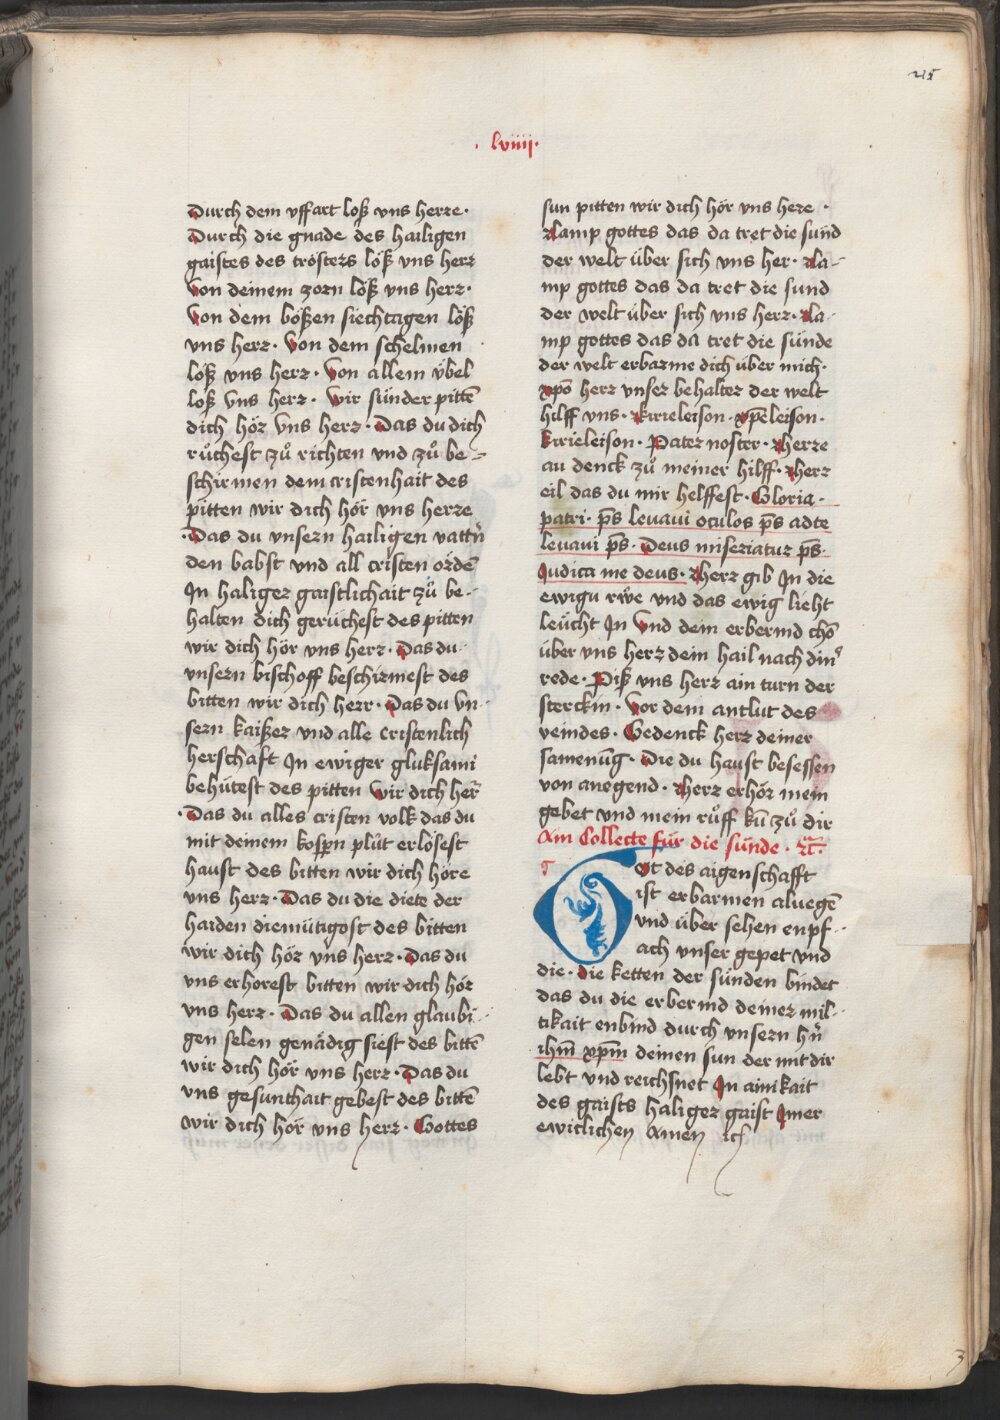 215
· lviiij ·
Durch dem vffart loß vns herre ·
Durch die gnade des hailigen
gaistes des trosters löß vns herr
Von deinem zorn löß vns herr ·
Von dem bößen siechtagen löß
vns herr · Von dem schelmen
löß vns herr · Von allem vbel
loß vns herr · Wir sünder pittē
dich hör vns herr · Das du dich
růchest zů richten vnd zů be-
schirmen dem cristenhait des
pitten wir dich hör vns herre
· Das du vnsern hailigen vattrn̄
den babst vnd all cristen ordē
In haliger gaistlichait zů be-
halten dich geruchest des pitten
wir dich hör vns herr · Das du
vnsern bischoff beschirmest des
bitten wir dich herr · Das du vn-
sern kaißer vnd alle cristenlich
herschaft In ewiger gluksami
behütest des pitten Wir dich her̄
· Das du alles cristen volk das du
mit deinem kospn plůt erlösest
haust des bitten wir dich höre
vns herr · Das du die diete der
haiden diemütigost des bitten
wir dich hör vns herr · Das du
vns erhorest bitten wir dich hör
vns herr · Das du allen glaubi-
gen selen genädig siest des bittē
wir dich hör vns herr · Das du
vns gesunthait gebest des bittē
wir dich hör vns herr · Gottes
sun pitten wir dich hör vns here ·
Lamp gottes das da tret die sund
der welt über sich vns her · La-
mp gottes das da tret die sund
der welt über sich vns herr · La-
mp gottes das da tret die sünde
der welt erbarme dich über mich ·
xpō herr vnser behalter der welt
hilff vns · Kirieleison · xp̄eleison ·
kirieleison · Pater noster · Herre
an denck zů meiner hilff · Herr
eil das du mir helffest · Gloria ·
patri · p̄s leuaui oculos p̄s adte
leuaui p̄s · Deus miseriatur p̄s ·
Iudica me deus · Herr gib In die
ewigu rwe vnd das ewig lieht
leücht In Vnd dein erbermd chō
über vns herr dein hail nach din̄
rede · Piß vns herr ain turn der
sterckin · Vor dem antlut des
veindes · Gedenck herr deiner
samenūg · Die du haust besessen
von anegend · Herr erhör mein
gebet vnd mein růff kū zů dir
Ain Collecte für die sünde · rc̄ ·
Got des aigenschafft
ist erbarmen alwegē
vnd über sehen enpf-
ach vnser gepet vnd
die · die ketten der sünden bindet
das du die erbermd deiner mil-
tikait enbind durch vnsern hn̄
ihm̄ xpm̄ deinen sun der mit dir
lebt vnd reichsnet In ainikait
des gaists haliger gaist Imer
ewiclichen Amen
3